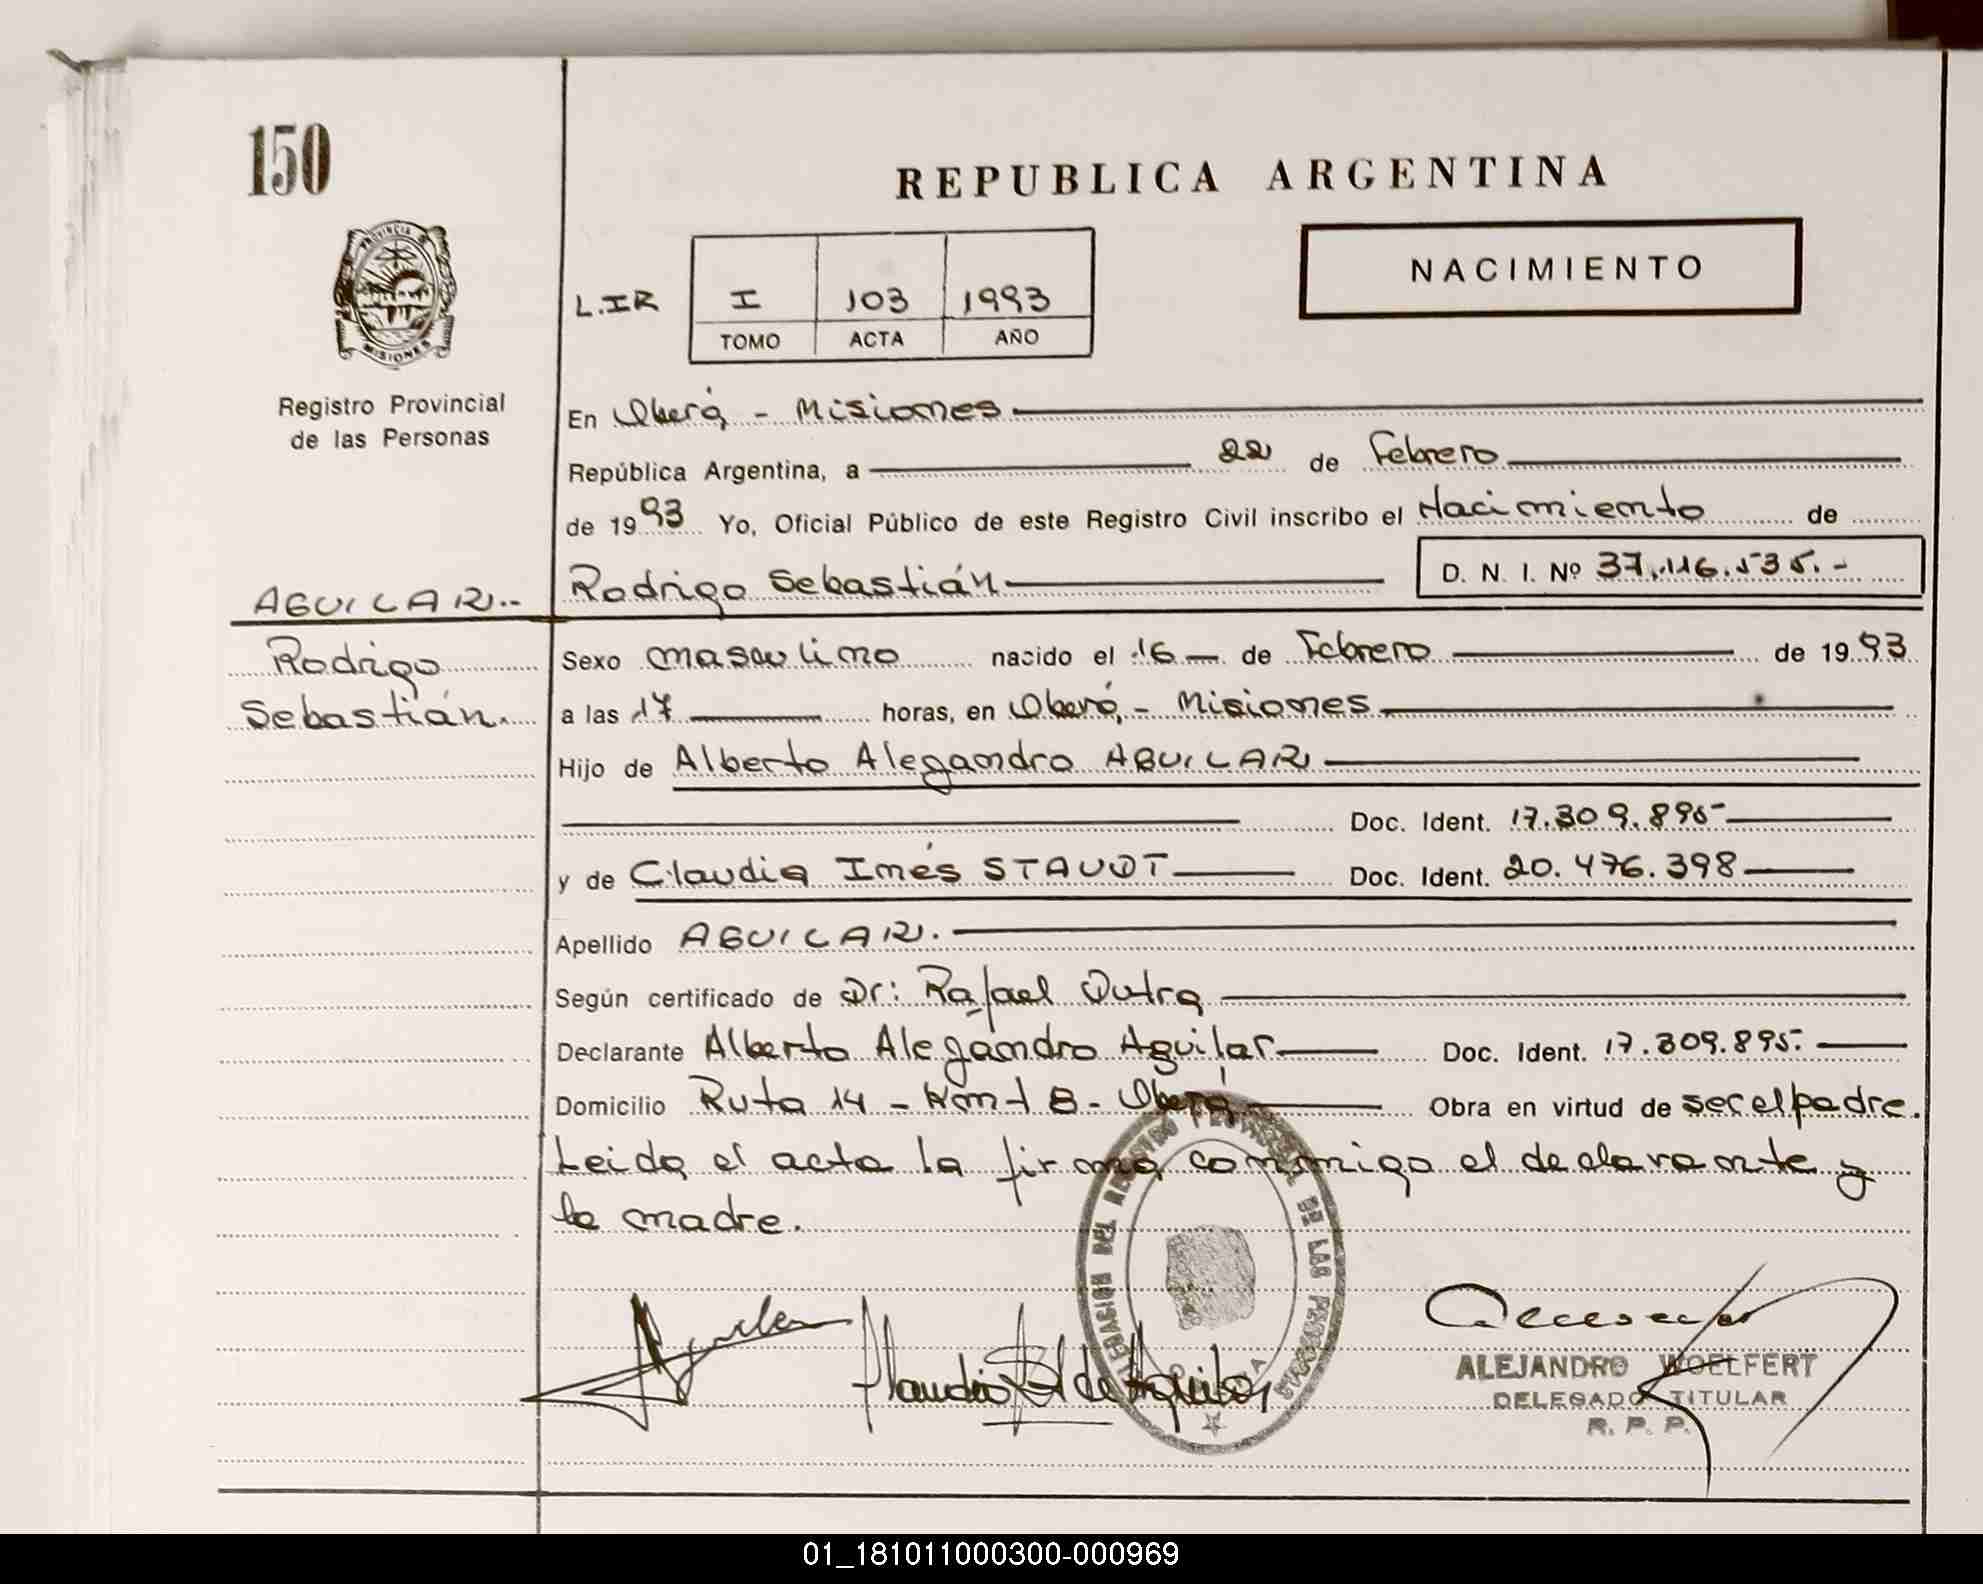 150
REPUBLICA ARGENTINA
NACIMIENTO
L.IR I 103 1993
TOMO ACTA AÑO
PROVINCIA DE MISIONES
Registro Provincial
de las Personas
En Oberá - Misiones
República Argentina, a 22 de Febrero
de 1993 Yo, Oficial Público de este Registro Civil inscribo el Nacimiento de
AGUILAR.- Rodrigo Sebastián D. N. I. Nº 37.116.535.-
Rodrigo Sexo masculino nacido el 16 de Febrero de 1993
Sebastián. a las 17 horas, en Oberá,- Misiones
Hijo de Alberto Alegandro AGUILAR
Doc. Ident. 17.309.895
y de Claudia Inés STAUDT Doc. Ident. 20.476.398
Apellido AGUILAR.
Según certificado de Dr: Rafael Dutra
Declarante Alberto Alegandro Aguilar Doc. Ident. 17.309.895.
Domicilio Ruta 14 - Oberá Obra en virtud de ser el padre.
Leida el acta la firma conmigo el declarante y
la madre.
DELEGACION DEL REGISTRO PROVINCIAL DE LAS PERSONAS
Aguilar Claudia de Aguilar
ALEJANDRO WOELFERT
DELEGADO TITULAR
R. P. P.
01_181011000300-000969